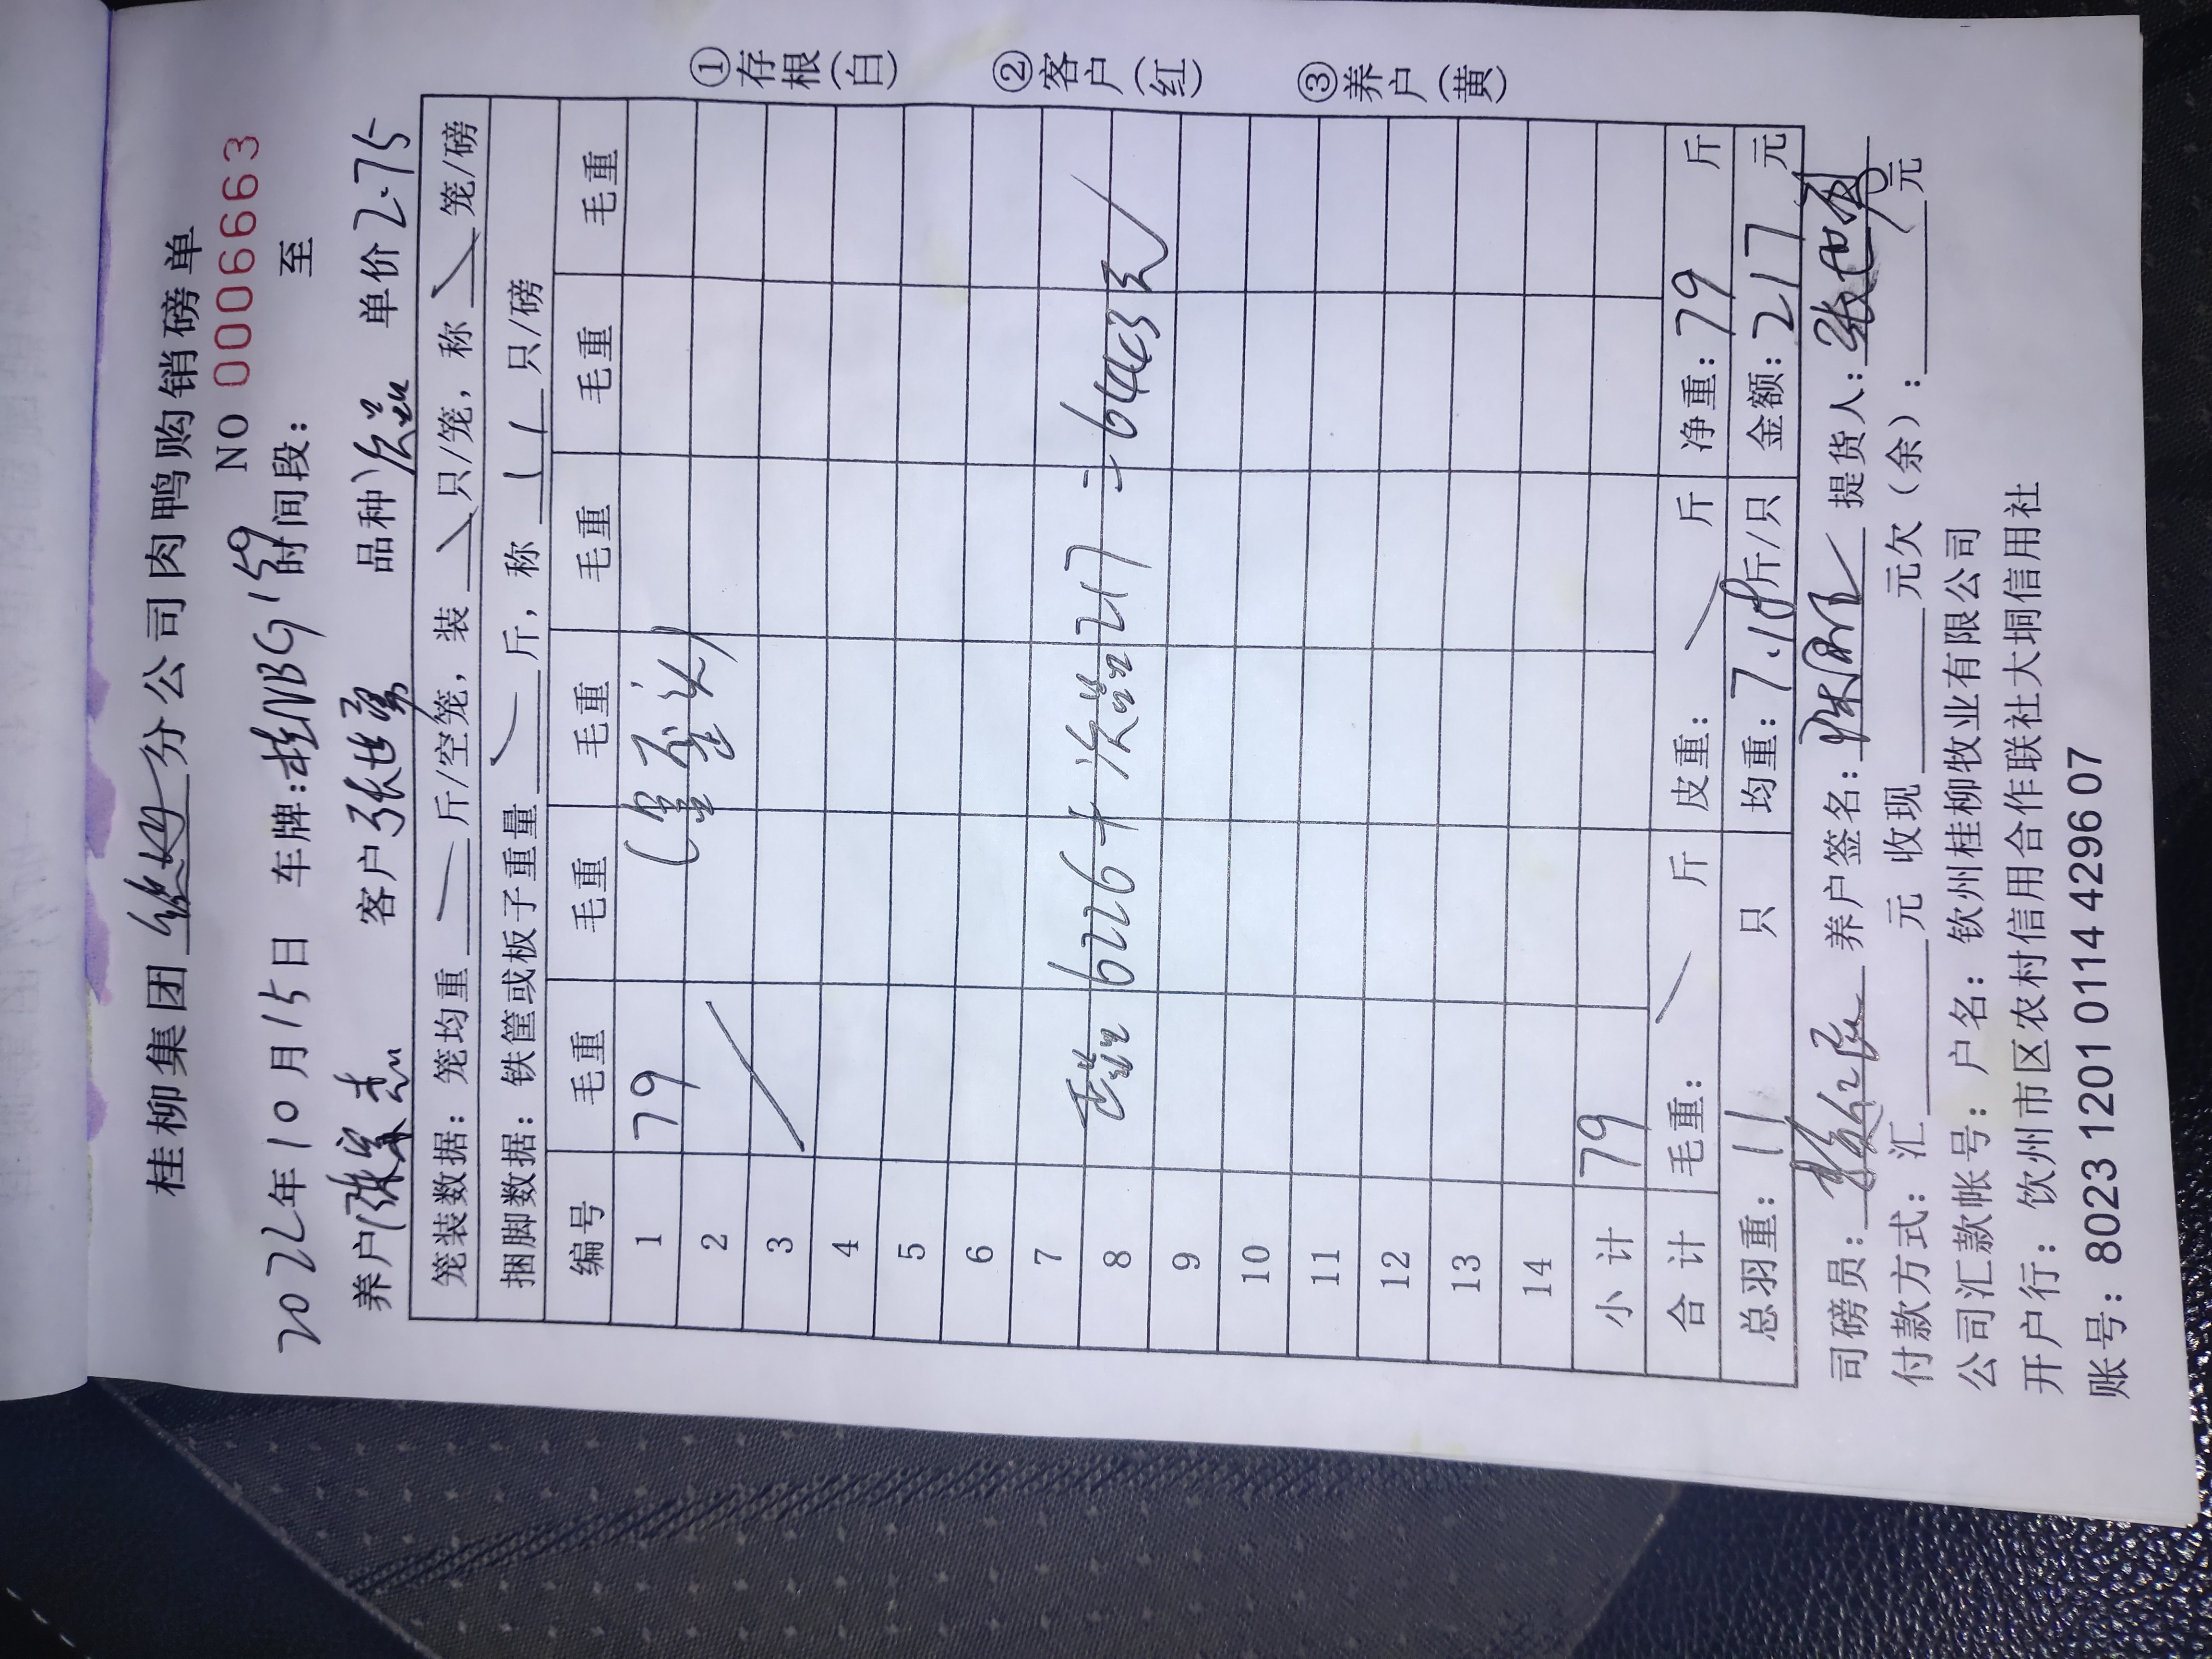 桂柳集团 分公司肉鸭购销磅单
NO 0006663
2022年10月15日 车牌:桂NBG159 时间段: 至
养户 客户 张世勇 品种 次益 单价 2.75
笼装数据: 笼均重 斤/空笼, 装 只/笼, 称 笼/磅
捆脚数据: 铁筐或板子重量 斤, 称 11 只/磅
编号 毛重 毛重 毛重 毛重 毛重 毛重
1 79
2
3
4
5
6
7
8 6226 + 次益217 = 6443元
9
10
11
12
13
14
小计 79
合计 毛重: 斤 皮重: 斤 净重: 79 斤
总羽重: 11 只 均重: 7.18 斤/只 金额: 217 元
司磅员: 养户签名: 提货人: 张世勇
付款方式: 汇 元 收现 元欠(余): 元
公司汇款帐号: 户名: 钦州桂柳牧业有限公司
开户行: 饮州市区农村信用合作联社大垌信用社
账号: 8023 1201 0114 4296 07
①存根(白)
②客户(红)
③养户(黄)